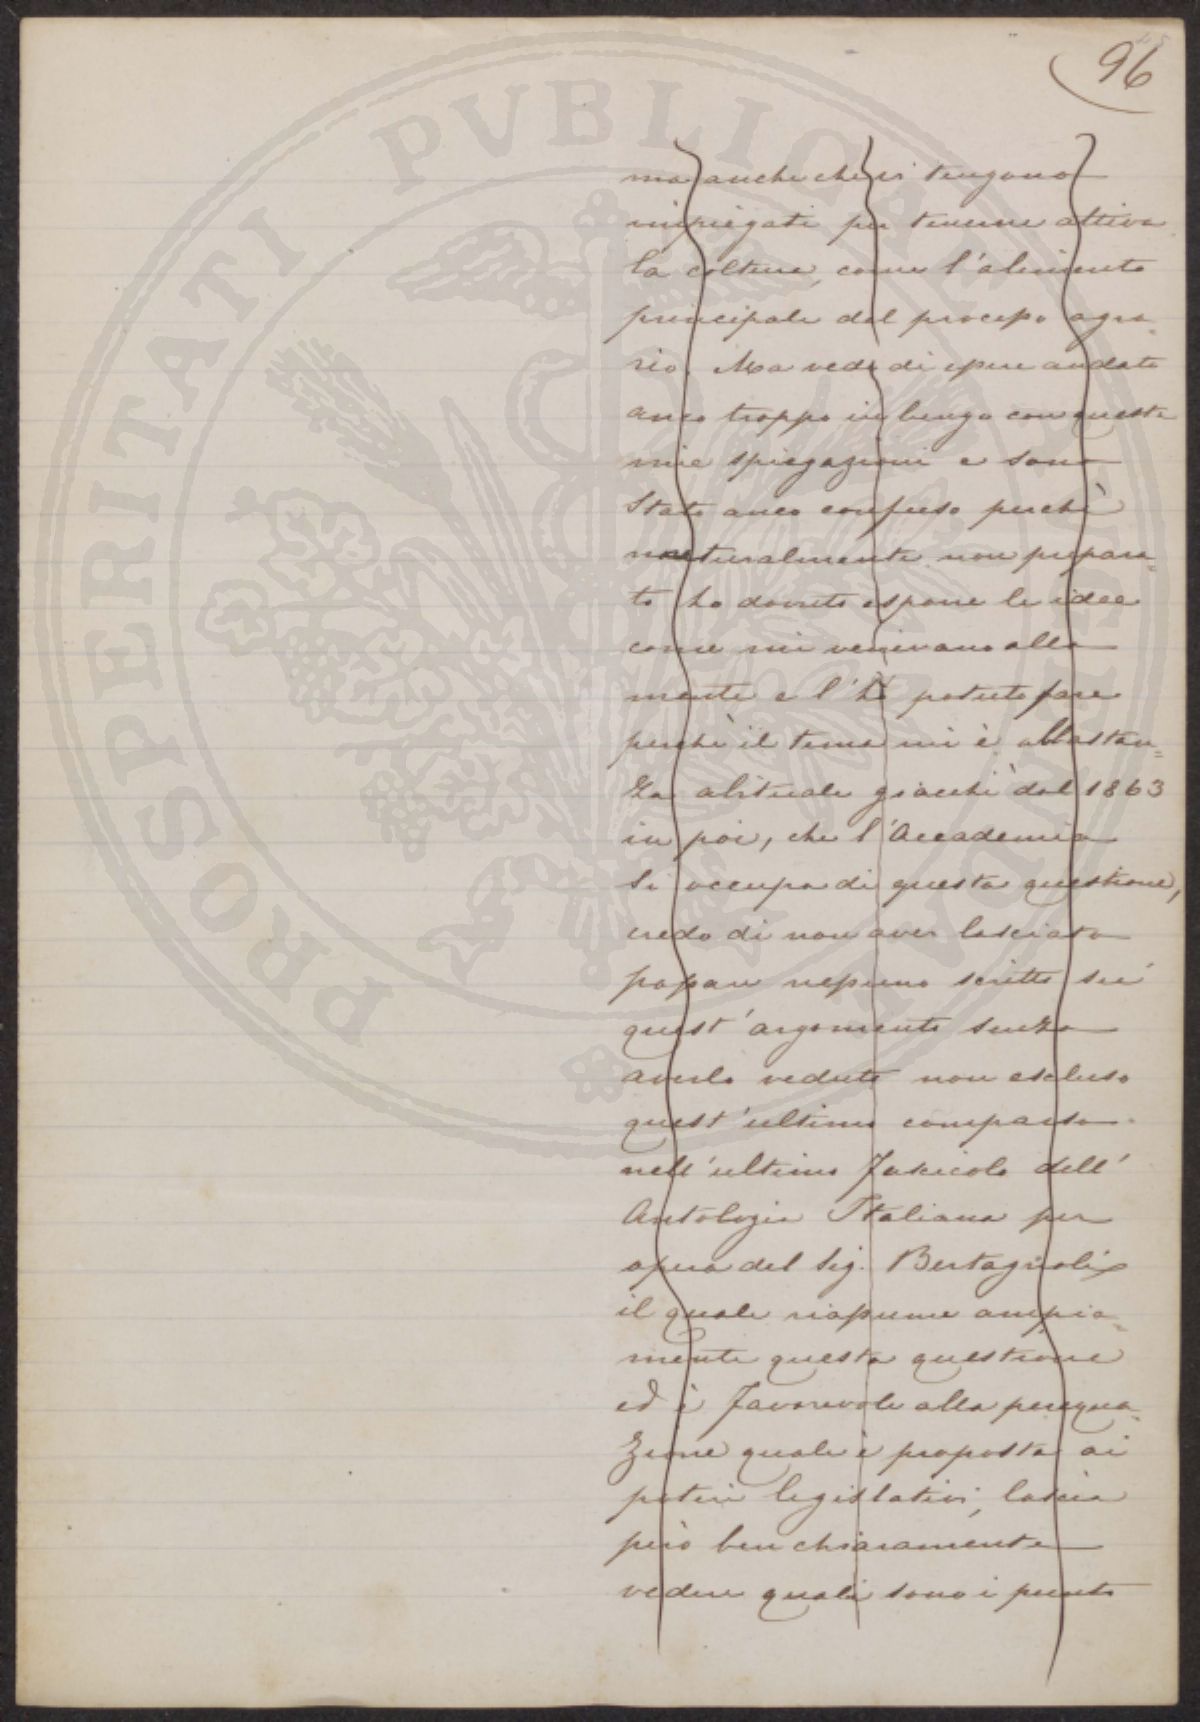 96
ma anche che vi tengono
impiegati per tenerne attiva
la coltura, come l'alimento
principale del processo agra-
rio. Ma vedo di essere andato
anco troppo in lungo con queste
mie spiegazioni e sono
stato anco confuso perchè
naturalmente non prepara=
to ho dovuto esporre le idee
come mi venivano alla
mente e l'ho potuto fare
perchè il tema mi è abbastan=
za abituale giacchè dal 1863
in poi, che l'Accademia
si occupa di questa questione,
credo di non aver lasciato
passare nessuno scritto su
quest'argomento senza
averlo veduto non escluso
quest'ultimo comparso
nell'ultimo fascicolo dell'
Antologia Italiana per
opera del Sig. Bertagnolli
il quale riassume ampia=
mente questa questione
ed è favorevole alla perequa-
zione quale è proposta ai
poteri legislativi; lascia
però ben chiaramente
vedere quali sono i punti
PROSPERITATI PVBLICAE AVGENDAE